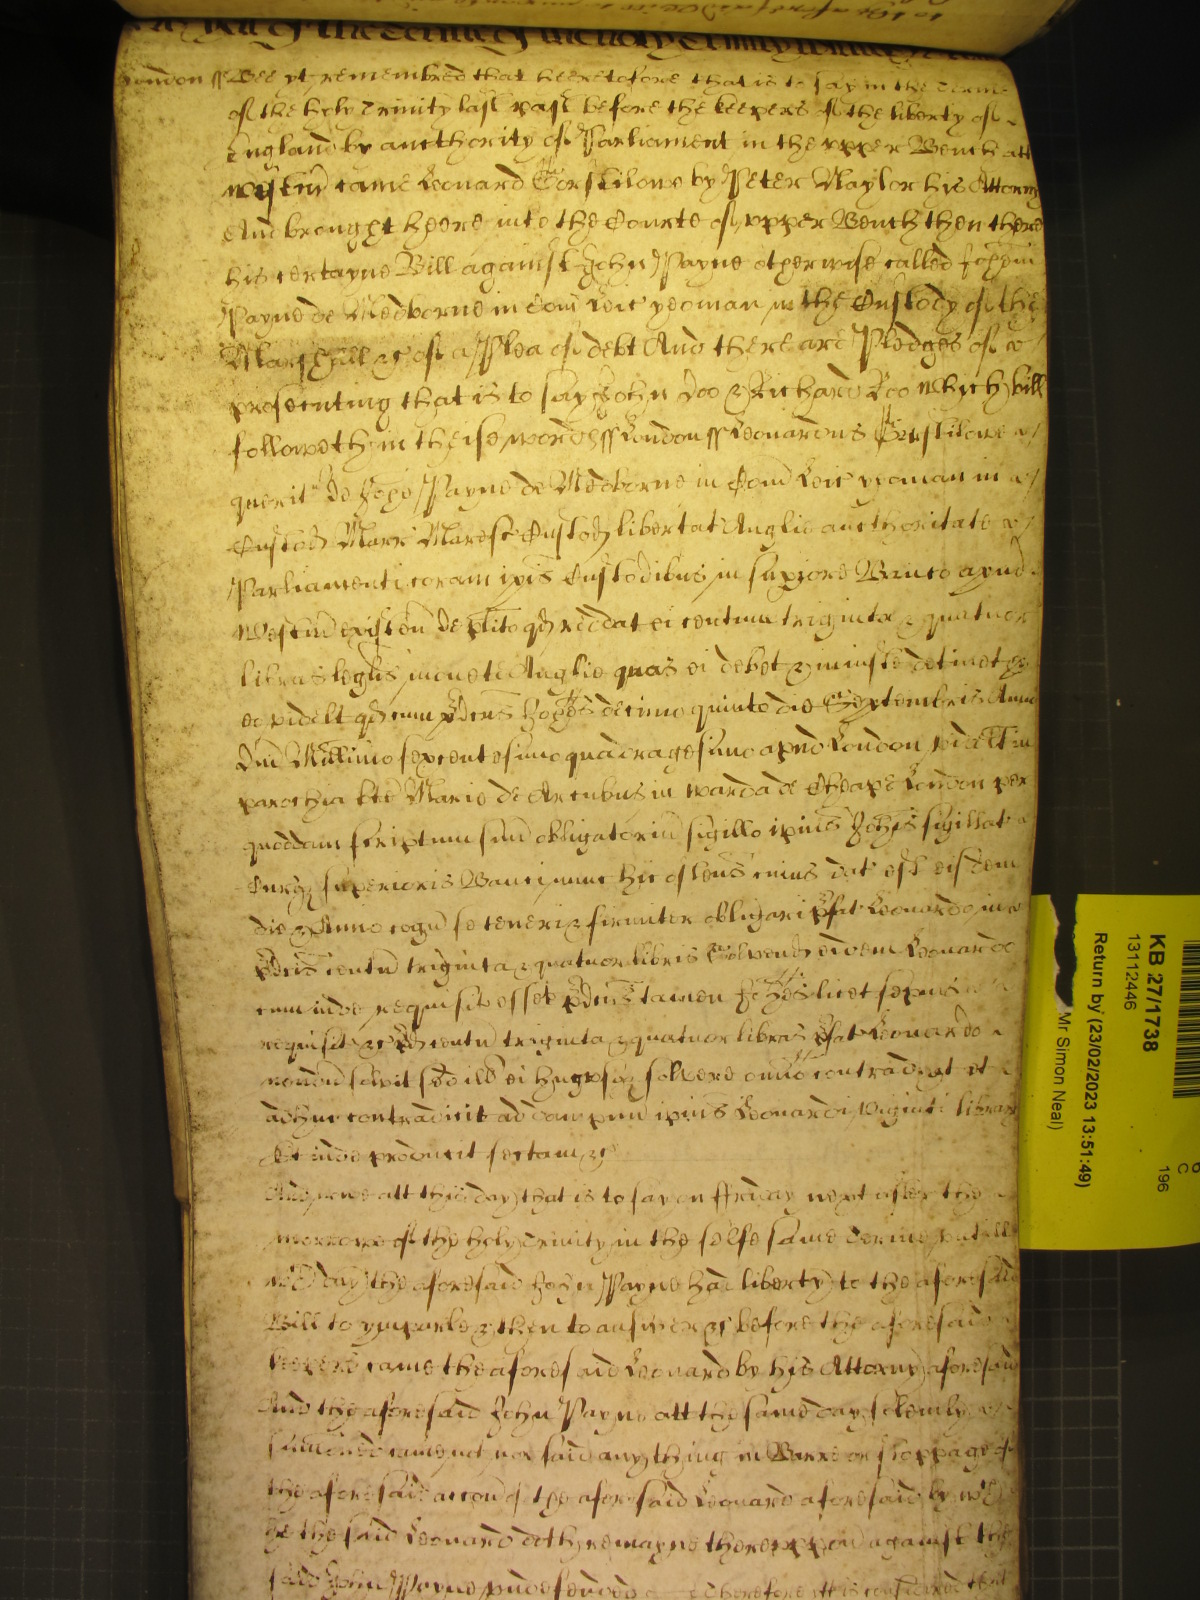 London ss Bee yt remembred that heeretofore that is to say in the Terme
of the holy Trinity last past before the keepers of the liberty of
England by aucthority of Parliament in the vpper Bench att
westm came Leonard by Peter Naylor his Attorny
And brought heere into the Courte of vpper Bench then there
his certayne Bill against John Payne otherwise called Johem
Payne de Medborne in Com Leic yeoman in the Custody of the
Marshall &c of a Plea of debt And there are Pledges of
prosecuting that is to say John Doo & Richard Roo which bill
followeth in theise words ss London ss Leonardus
querit de Johe Payne de Medborne in Com Leic yeoman in
Custod Marr Maresc Custod libertat Anglie aucthoritate
Parliamenti coram ipis Custodibus in supiore Banco apud
Westm existen de plito qd reddat ei centum triginta & quatuor
libras leglis monete Anglie quas ei debet & iniuste detinet
eo videlt qd cum pdcus Johes decimo quinto die Septembris Anno
Dni Millimo sexcentesimo quadragesimo apud London videlt in
parochia be Marie de Arcubus in warda de Cheape London per
quoddam scriptum suu obligatoriu sigillo ipius Johis sigillat
Curq superioris Banci nunc hic ostens cuius dat est eisdem
die & Anno cogn se teneri & firmiter obligari pfat Leonardo in
pdcis centu triginta & quatuor libris Solvend eidem Leonardo
cum inde requisit esset pdcus tamen Johes licet sepius
requisit &c pd centu triginta & quatuor libras pfat Leonardo
nondu solvit sed ill ei hucusq solvere omio contradixit et
adhuc contradicit ad dampnu ipius Leonardi viginti librar
Et inde producit sectam &c
And nowe att this day that is to say on ffriday next after the
morrowe of the holy Trinity in the selfe same Terme vntill
wch day the aforesaid John Payne had liberty to the aforesaid
Bill to ymparle & then to answer &c before the aforesaid
keepers came the aforesaid Leonard by his Attorny aforesaid
And the aforesaid John Payne att the same day solemly
sumoned came not nor said any thing in Barre or stoppage of
the aforesaid accon of the aforesaid Leonard aforesaid by wch
he the said Leonard doth remayne therevppon against the
said John Payne vndefended Therefore itt is considered that
KB 27/1738
13112446
Return by (23/02/2023 13:51:49)
Mr Simon Neal)
196
C